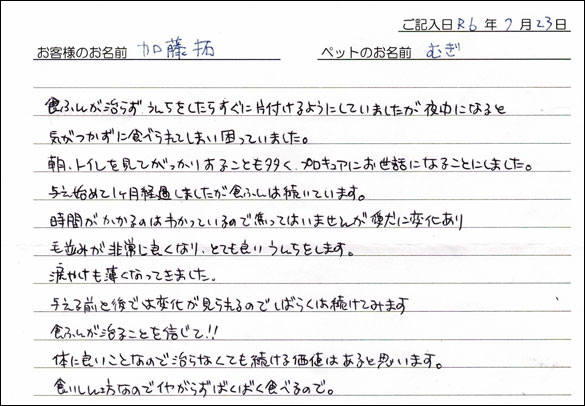 ご記入日 R6 年 7 月 23 日
お客様のお名前 加藤拓 ペットのお名前 むぎ
食ふんが治らず うんちをしたらすぐに片付けるようにしていましたが夜中になると
気がつかずに食べられてしまい困っていました。
朝、トイレを見てがっかりすることも多く、プロキュアにお世話になることにしました。
与え始めて1ヶ月経過しましたが食ふんは続いています。
時間がかかるのはわかっているので焦ってはいませんが愛犬に変化あり
毛並みが非常に良くなり、とても良いうんちをします。
涙やけも薄くなってきました。
与える前と後では変化が見られるのでしばらくは続けてみます
食ふんが治ることを信じて!!
体に良いことなので治らなくても続ける価値はあると思います。
食いしん坊なのでイヤがらずばくばく食べるので。